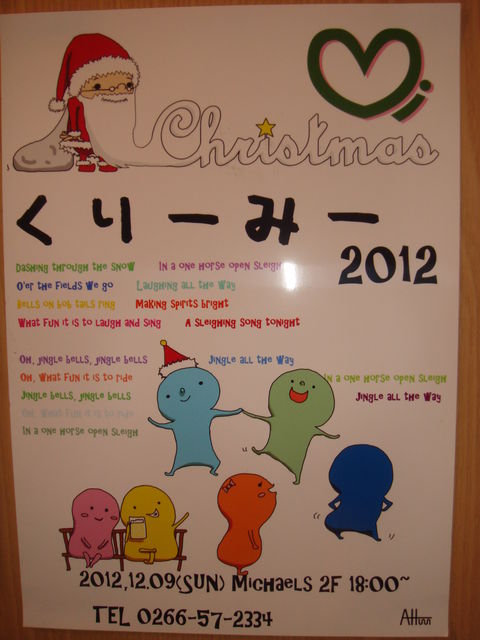 Christmas
くりーみー
2012
Dashing through the snow In a one horse open sleigh
O'er the fields we go Laughing all the way
Bells on bob tails ring Making spirits bright
What fun it is to laugh and sing A sleighing song tonight
Oh, jingle bells, jingle bells Jingle all the way
Oh, what fun it is to ride In a one horse open sleigh
Jingle bells, jingle bells Jingle all the way
Oh, what fun it is to ride
In a one horse open sleigh
2012,12.09(SUN) Michaels 2F 18:00~
TEL 0266-57-2334